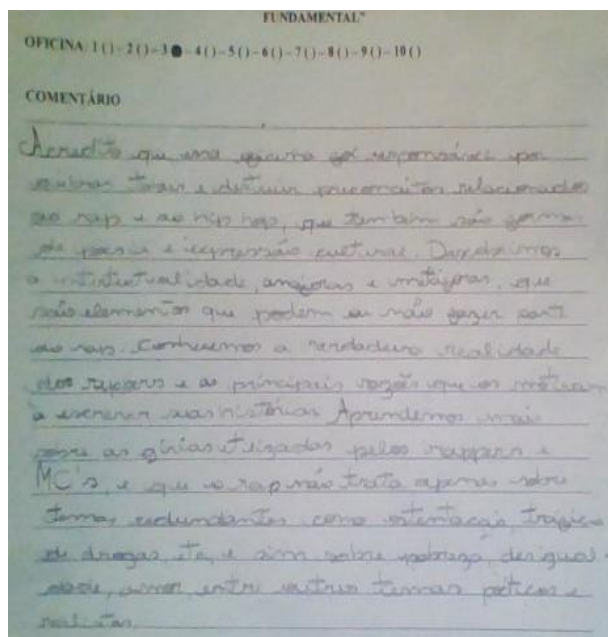 FUNDAMENTAL"
OFICINA: 1 ( ) - 2 ( ) - 3 ● - 4 ( ) - 5 ( ) - 6 ( ) - 7 ( ) - 8 ( ) - 9 ( ) - 10 ( )
COMENTÁRIO
Acredito que essa oficina foi responsável por
quebrar e destruir preconceitos relacionados
ao rap e ao hip hop, que também são formas
de poesia e expressão cultural.
a intertextualidade, anáforas e metáforas, que
são elementos que podem ou não fazer parte
do rap. Conhecemos a verdadeira realidade
dos rappers e as principais razões que os motivam
à escrever suas histórias. Aprendemos mais
sobre as gírias utilizadas pelos rappers e
MC's, e que o rap não trata apenas sobre
temas redundantes como ostentação, tráfico
de drogas, etc, e sim sobre pobreza, desigual-
dade, amor entre outros temas poéticos e
realistas.